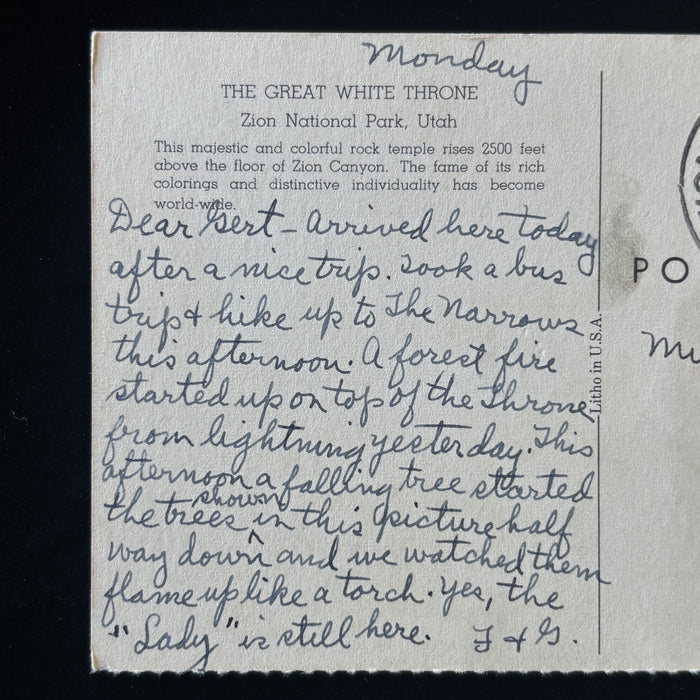 Monday
THE GREAT WHITE THRONE
Zion National Park, Utah
This majestic and colorful rock temple rises 2500 feet
above the floor of Zion Canyon. The fame of its rich
colorings and distinctive individuality has become
world-wide.
Dear Gert - Arrived here today
after a nice trip. Took a bus
trip & hike up to The Narrows
this afternoon. A forest fire
started up on top of the Throne
from lightning yesterday. This
afternoon a falling tree started
the trees shown in this picture half
way down and we watched them
flame up like a torch. Yes, the
"Lady" is still here. F & G.
Litho in U.S.A.
PO